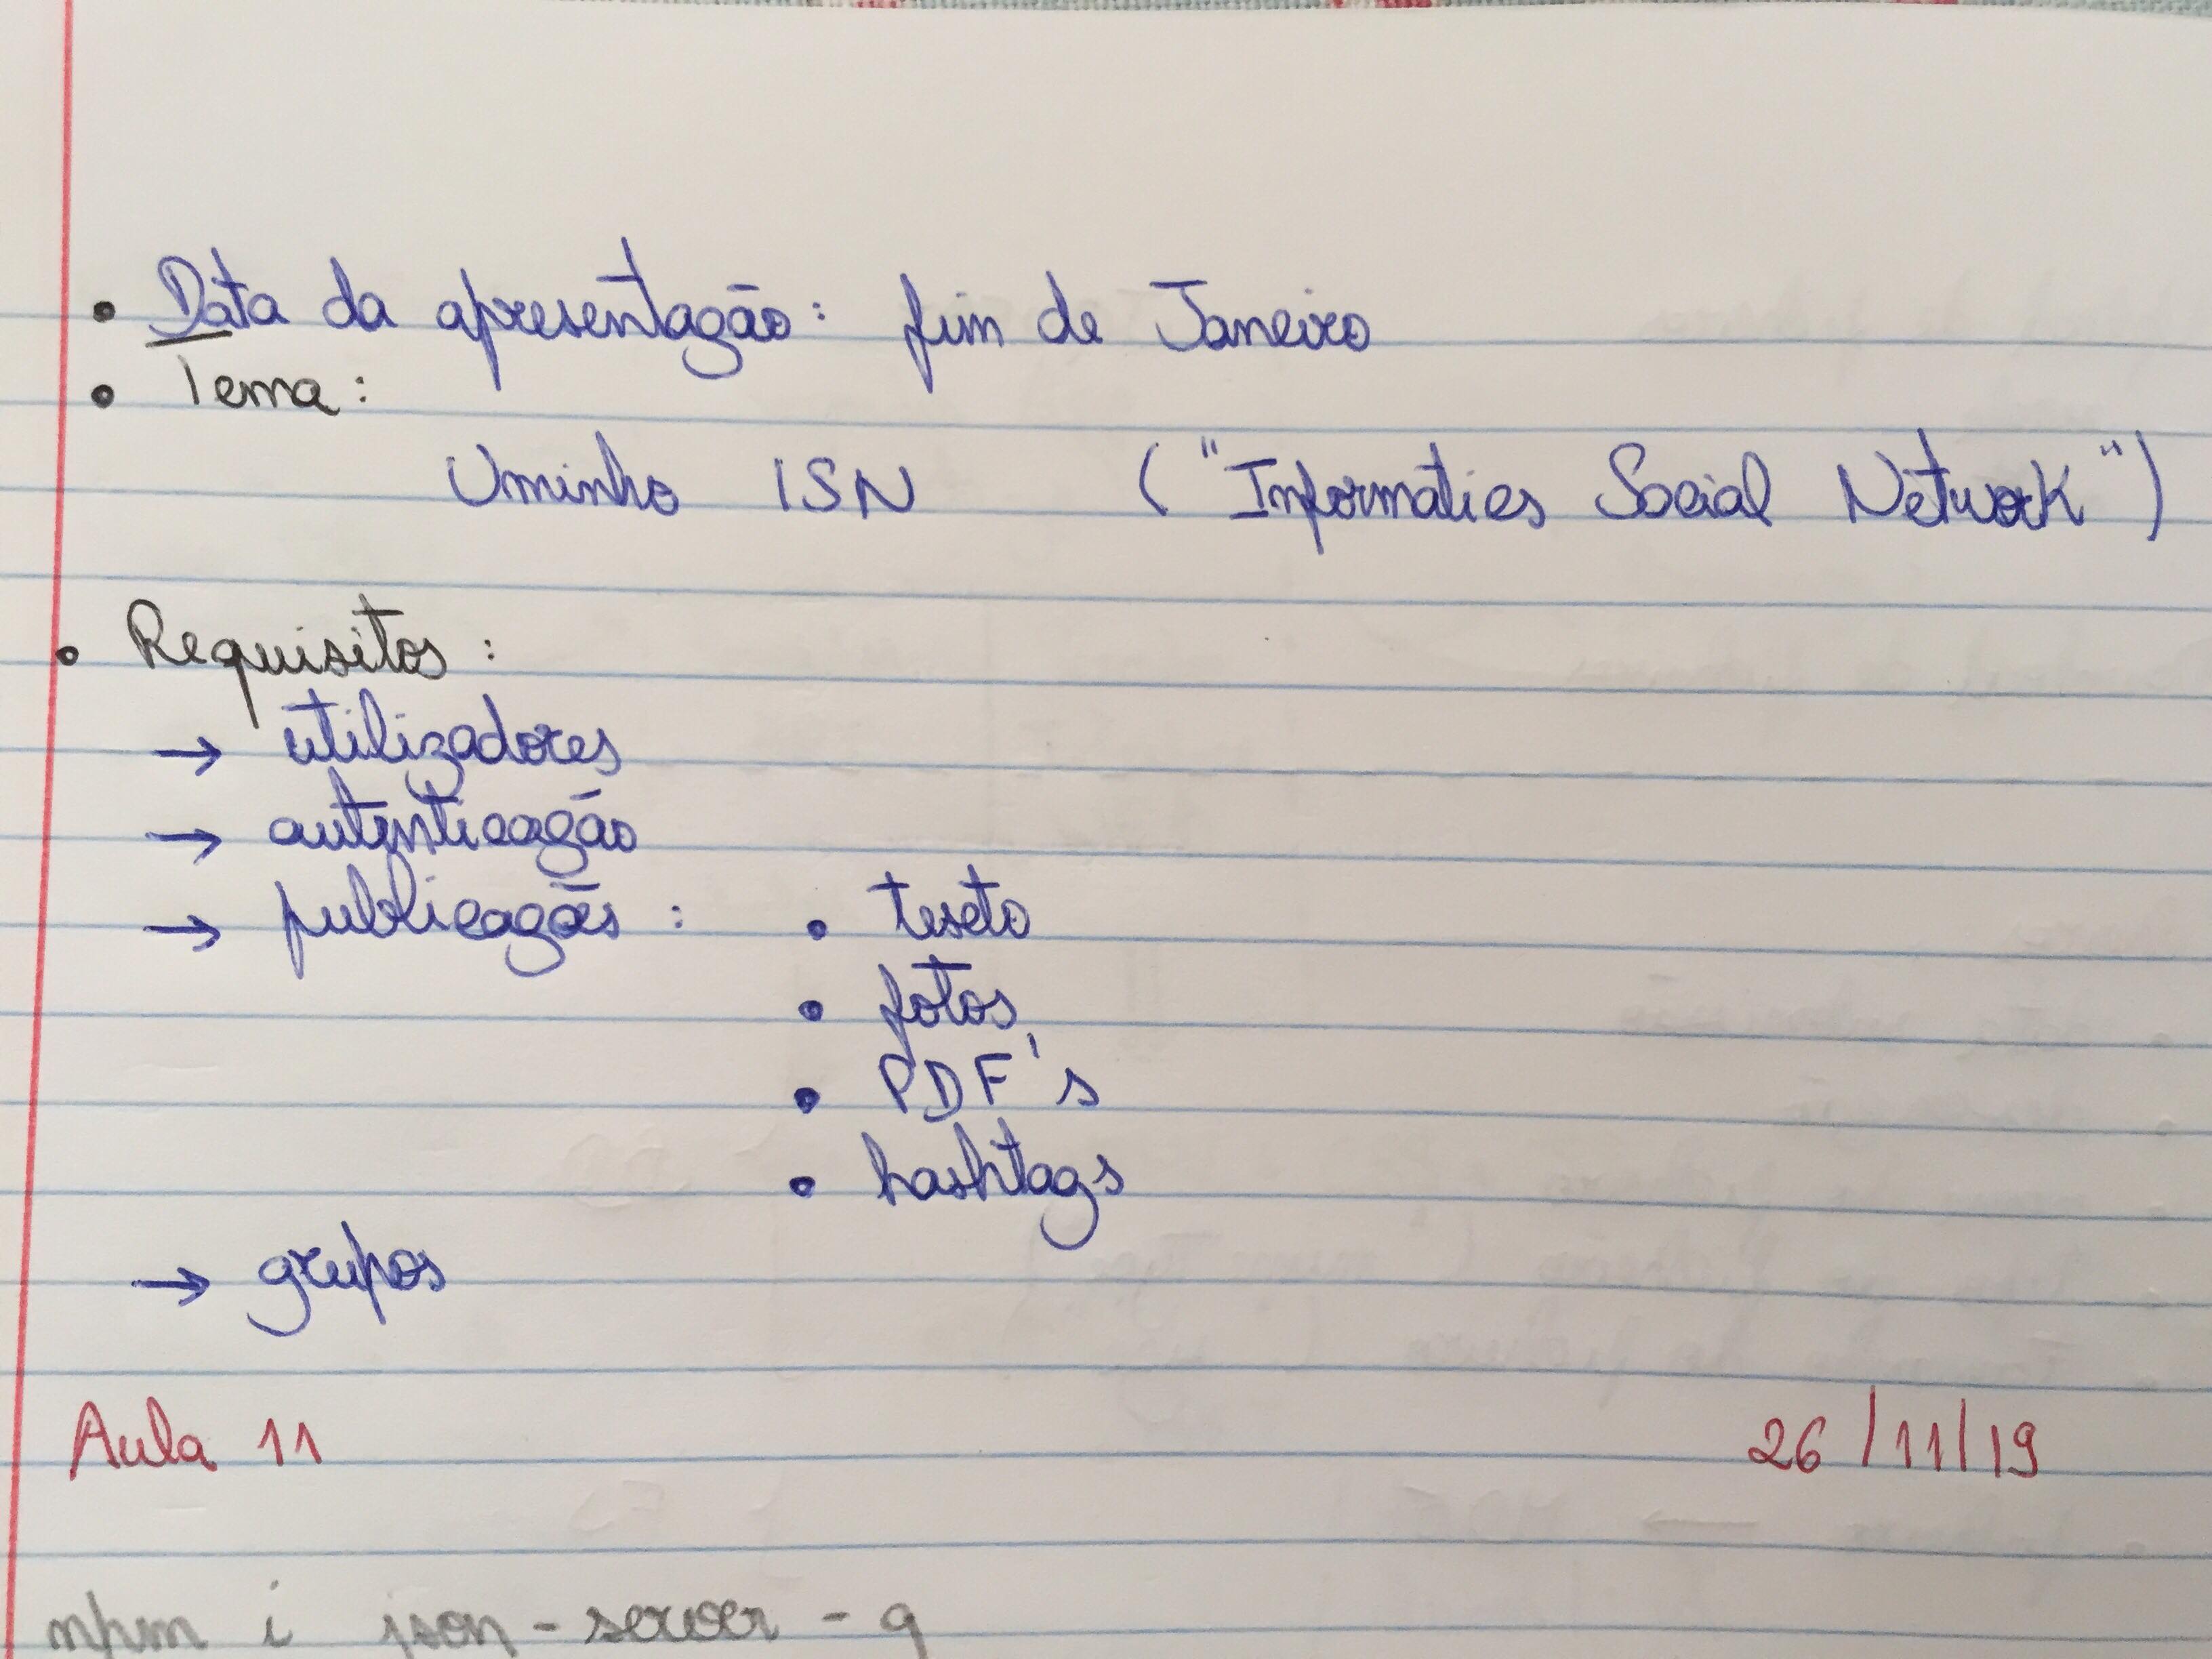 • Data da apresentação: fim de Janeiro
• Tema:
Uminho ISN ("Informatics Social Network")
• Requisitos:
→ utilizadores
→ autenticação
→ publicações: • texto
• fotos
• PDF's
• hashtags
→ grupos
Aula 11 26/11/19
npm i json-server -g